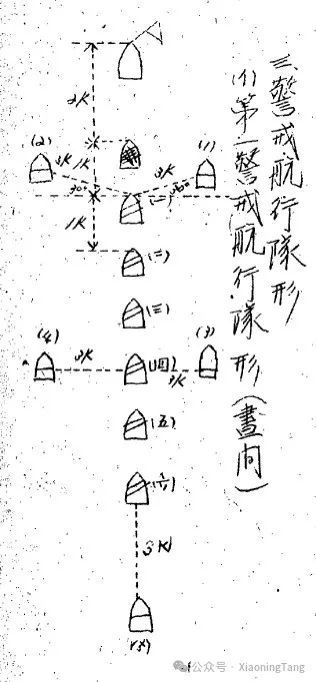 三、警戒航行隊形
(イ)第一警戒航行隊形(晝間)
2K
(2)
3K
1K
3K
(1)
30°
(一)
30°
1K
(二)
(三)
(4)
3K
(四)
3K
(3)
(五)
(六)
3K
公众号 · XiaoningTang